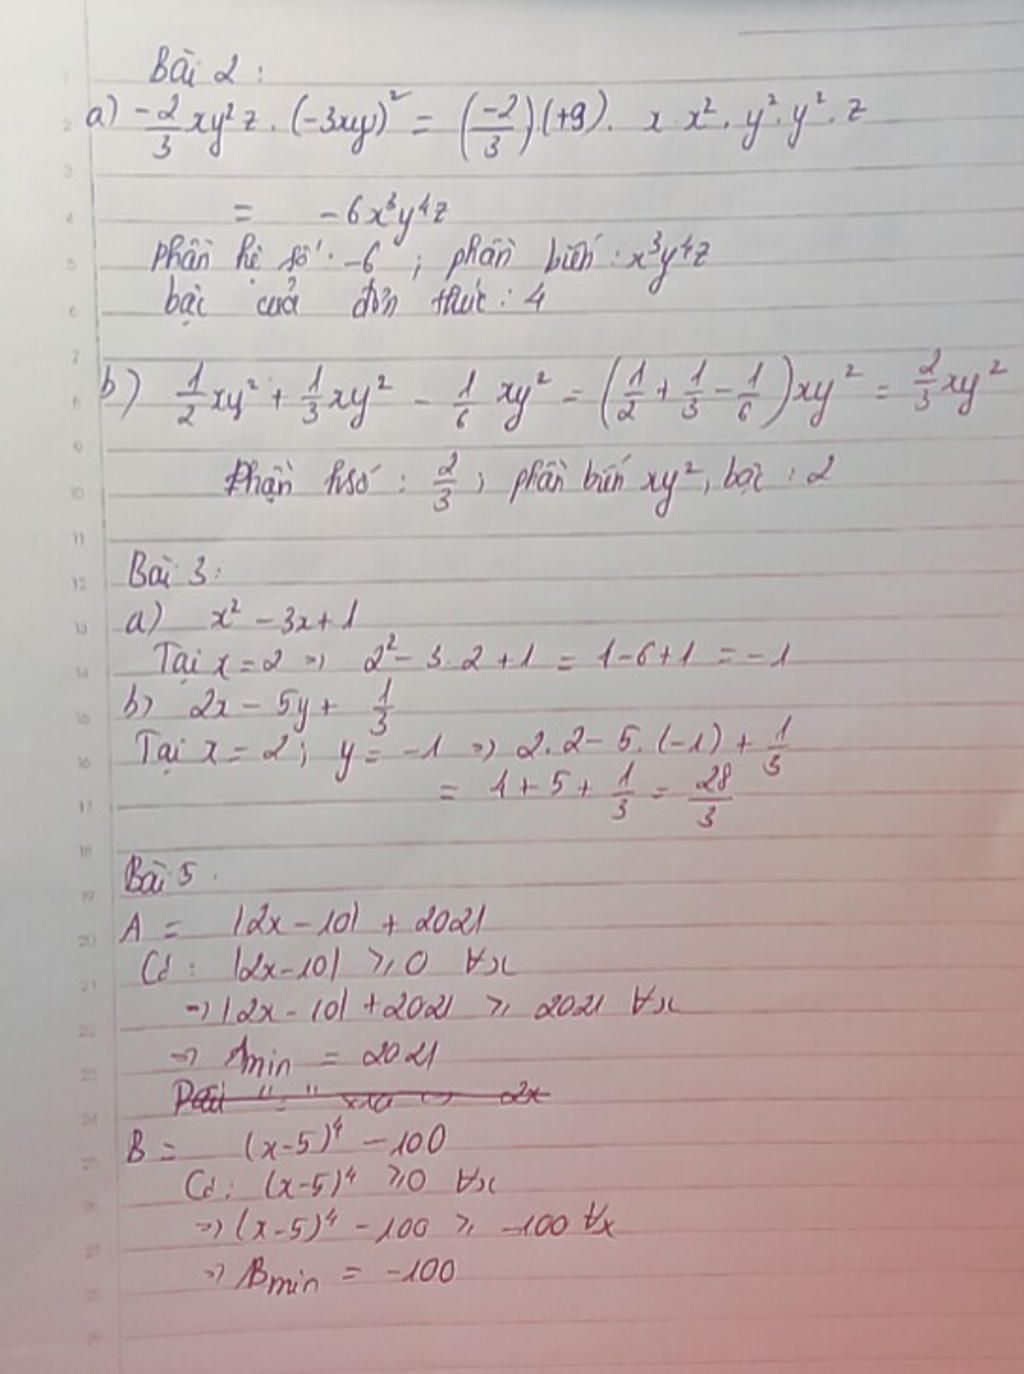 Bài 2 :
a) -2/3 xy²z . (-3xy)² = (-2/3)(+9). x x². y². y². z
= -6x³y⁴z
phần hệ số : -6 ; phần biến : x³y⁴z
bậc của đơn thức : 4
b) 1/2 xy² + 1/3 xy² - 1/6 xy² = (1/2 + 1/3 - 1/6)xy² = 2/3 xy²
Phần hsố : 2/3 ; phần biến xy², bậc : 2
Bài 3 :
a) x² - 3x + 1
Tại x = 2 => 2² - 3.2 + 1 = 4 - 6 + 1 = -1
b) 2x - 5y + 1/3
Tại x = 2 ; y = -1 => 2.2 - 5.(-1) + 1/3
= 4 + 5 + 1/3 = 28/3
Bài 5.
A = |2x - 10| + 2021
Có : |2x - 10| ≥ 0 ∀x
=> |2x - 10| + 2021 ≥ 2021 ∀x
=> Amin = 2021
B = (x-5)⁴ - 100
Có : (x-5)⁴ ≥ 0 ∀x
=> (x-5)⁴ - 100 ≥ -100 ∀x
=> Bmin = -100